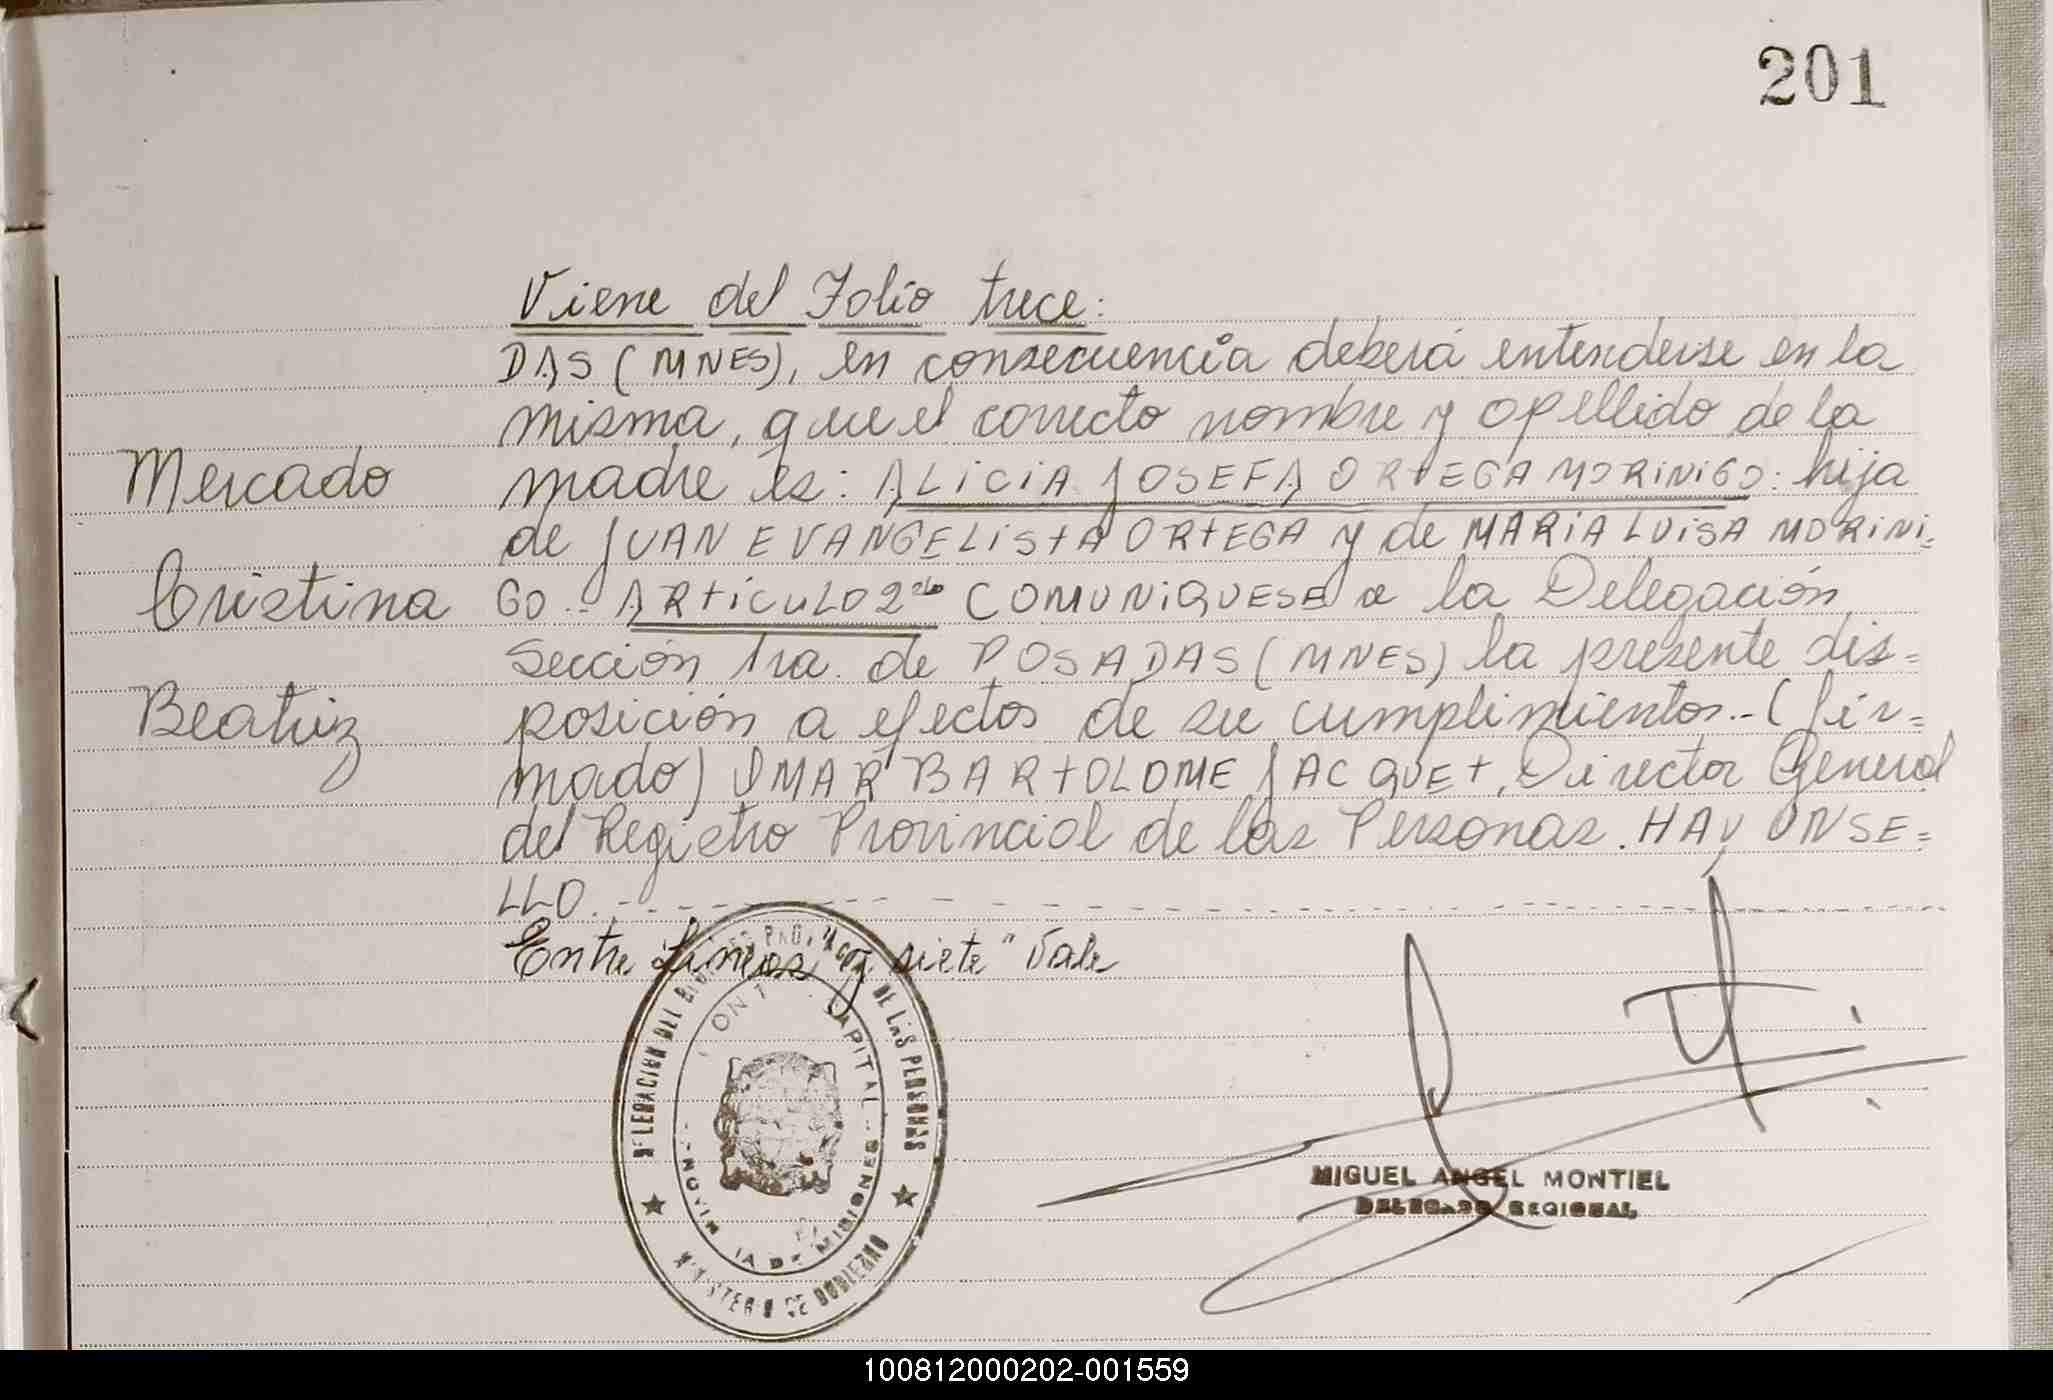 201
Viene del Folio trece:
DAS (MNES), en consecuencia deberá entenderse en la
misma, que el correcto nombre y apellido de la
Mercado
madre es: ALICIA JOSEFA ORTEGA MORINIGO: hija
de JUAN EVANGELISTA ORTEGA y de MARIA LUISA MORINI=
Cristina
GO.- ARTICULO 2do COMUNIQUESE a la Delegación
Sección 1ra. de POSADAS (MNES) la presente dis=
Beatriz
posición a efectos de su cumplimientos.- (fir=
mado) OMAR BARTOLOME JACQUET, Director General
del Registro Provincial de las Personas. HAY UN SE=
LLO.
Entre Lineas "y siete" Vale
DELEGACION DEL DE LAS PERSONAS
CAPITAL
PROVINCIA DE MISIONES
MINISTERIO DE GOBIERNO
MIGUEL ANGEL MONTIEL
DELEGADO REGIONAL
100812000202-001559